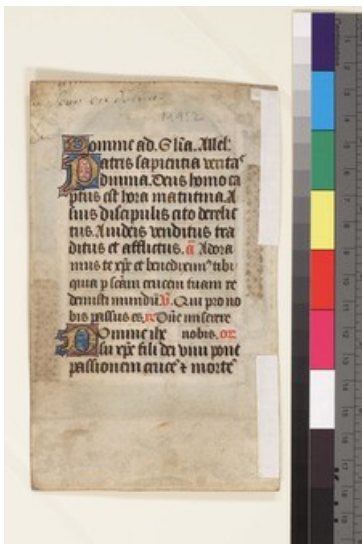 M 952
Domine ad. Gl̄a. Allel̄
Patris sapientia veritas
divina. Deus homo ca
ptus est hora matutina. A
suis discipulis cito derelic
tus. A iudeis venditus tra
ditus et afflictus. a Adora
mus te xp̄e et benedicim᷒ tibi
quia p̄ sc̄am crucem tuam re
demisti mundū. V. Qui pro no
bis passus es. R Dn̄e miserere
Domine ihe nobis. or
su xp̄e fili dei vivi pone
passionem cruce᷒ ⁊ mortē